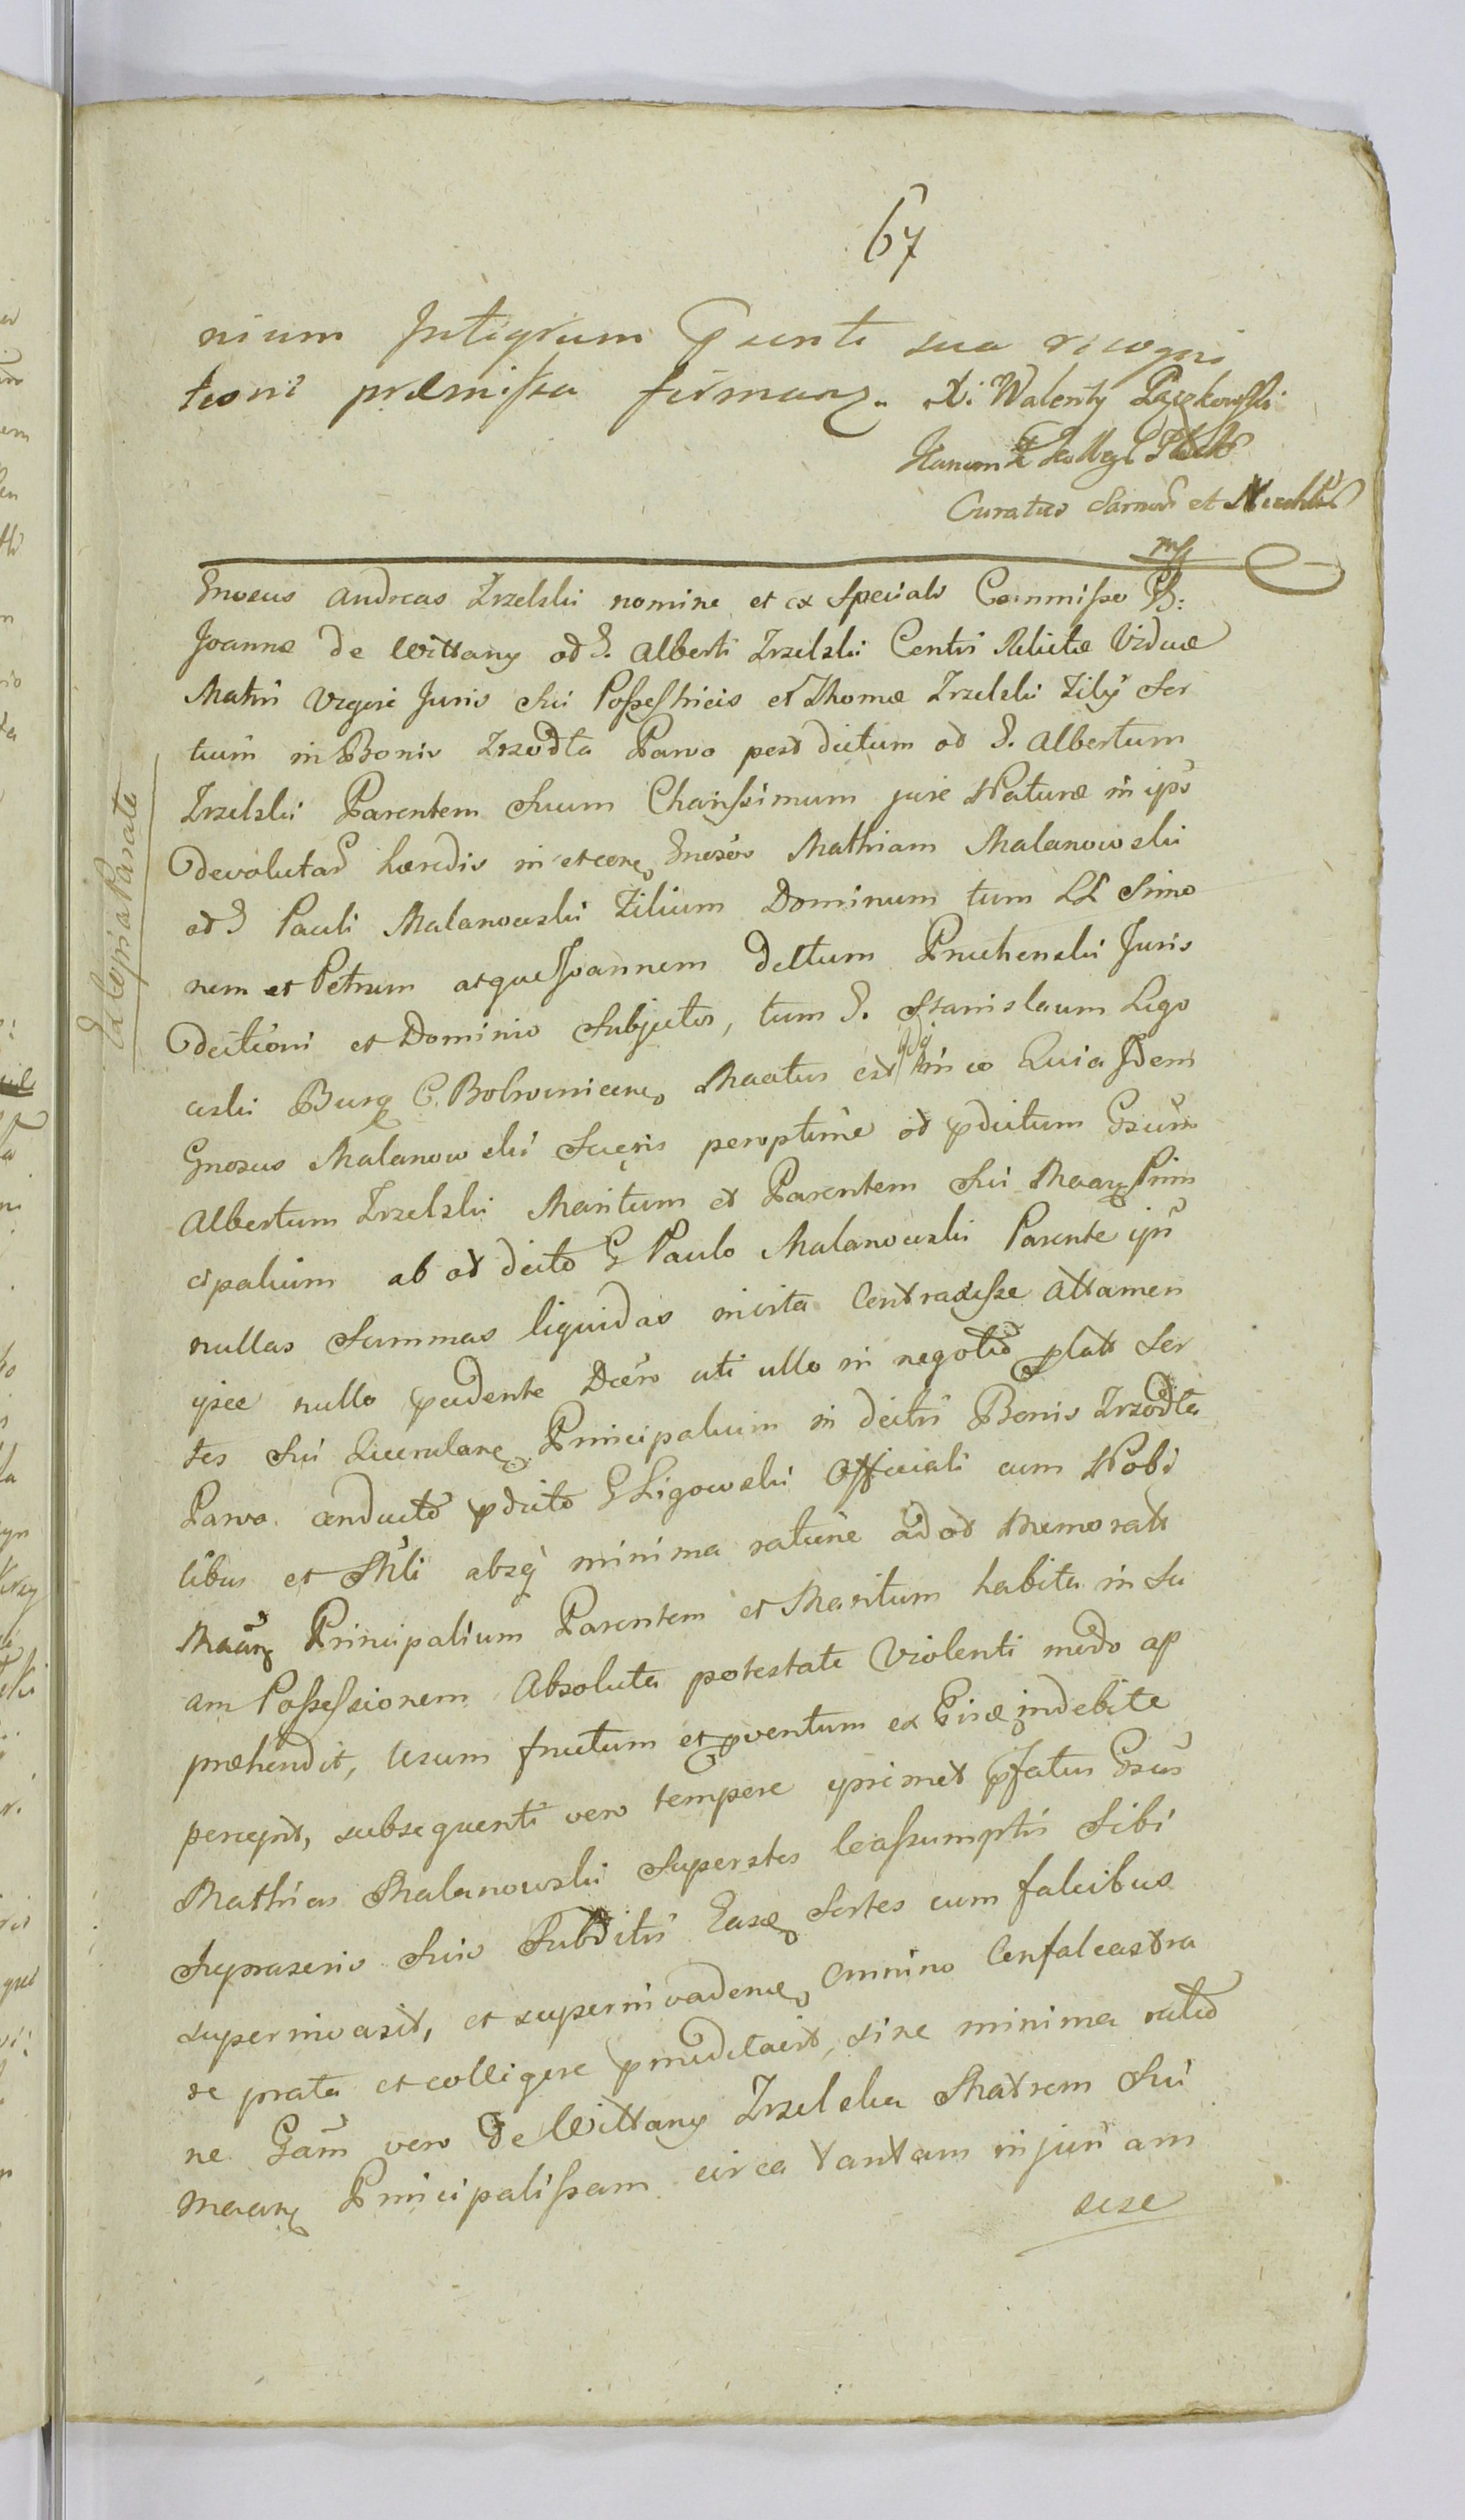 67
nium Integrum Psenti sua recogni
tione præmissa firmans. X. Walenty Pączkowski
Curatus Sarnov et
mp
Gnosus Andreas Zrzelski nomine et ex Speciali Commisso G:
Joannæ de Wittany od G. Alberti Zrzelski Contri Relictæ Viduæ
Matris Vigore Juris Sui Possessricis et Thomæ Zrzelski Filij Sor
tium in Bonis Zrzodła Parvo post dictum od G. Albertum
Zrzelski Parentem Suum Charissimum jure Naturæ in ips
devolutar hæredis in et cone Gnosos Mathiam Malanowski
od G Pauli Malanowski Filium Dominum tum LL Simo
nem et Petrum atque Joannem dictum Pruchenski Juris
dictioni et Dominio Subjectos, tum G. Stanislaum Ligo
wski Burg C. Bobrownicene Quæstus est qdq in eo Quia Idem
Gnosus Malanowski Sciens peroptime od pdictum Gsum
Albertum Zrzelski Maritum et Parentem Sui Maarz Prin
cipalium ab od dicto G Paulo Malanowski Parente ips
nullas Summas liquidas inscrita Contraxisse Attamen
ipse nullo pcedente Decro uti ullo in negotio plato Sor
tes Sui Querulane Principalium in dictis Bonis Zrzodła
Parvo. conducto pdicto G Ligowski Officiali cum Nobi
libus et Mli absq minima ratione ad od Memorate
Maarz Principalium Parentem et Maritum habita in Su
am Possessionem Absoluta potestate Violenti modo ap
præhendit, Usum fructum et pventum ex Eisdæ indebite
percepit, subsequenti vero tempore ipsimet pfatus Gsus
Mathias Malanowski Superstes Coassumptis Sibi
Suprascris Suis Subditis Easde Sortes cum falcibus
superinvasit, et superinvadendo, omnino Confalcastra
se prata et colligere pmeditavit, sine minima ratio
ne Gam vero De Wittany Zrzelska Matrem Sui
Maarz Principalissam circa tantam injuriam
sese
Ed Copia Parata